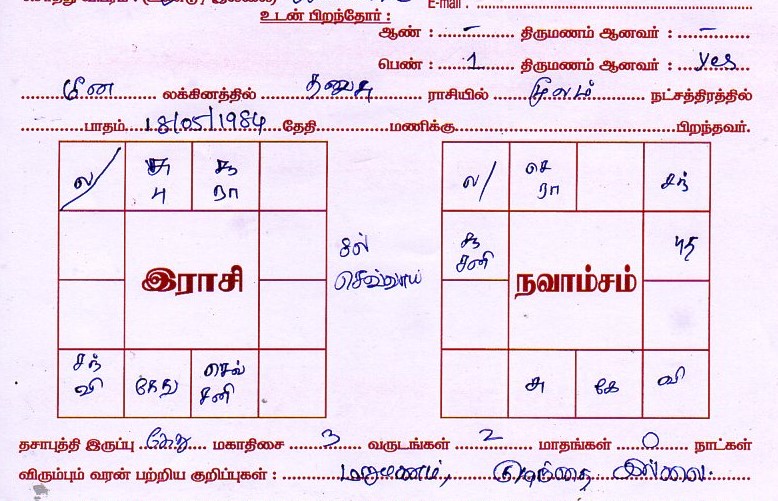 E-mail :
உடன் பிறந்தோர் :
ஆண் : - திருமணம் ஆனவர் : -
பெண் : 1 திருமணம் ஆனவர் : yes
மீன லக்கினத்தில் தனுசு ராசியில் மூலம் நட்சத்திரத்தில்
பாதம் 18/05/1984 தேதி மணிக்கு பிறந்தவர்.
ல/ சு சூ ல/ செ சந்
பு ரா ரா
சுல் சூ புத
செவ்வாய் சனி
இராசி நவாம்சம்
சந் கேது செவ் சு கே வி
வி சனி
தசாபுத்தி இருப்பு கேது மகாதிசை 3 வருடங்கள் 2 மாதங்கள் 0 நாட்கள்
விரும்பும் வரன் பற்றிய குறிப்புகள் : மறுமணம், குழந்தை இல்லை.